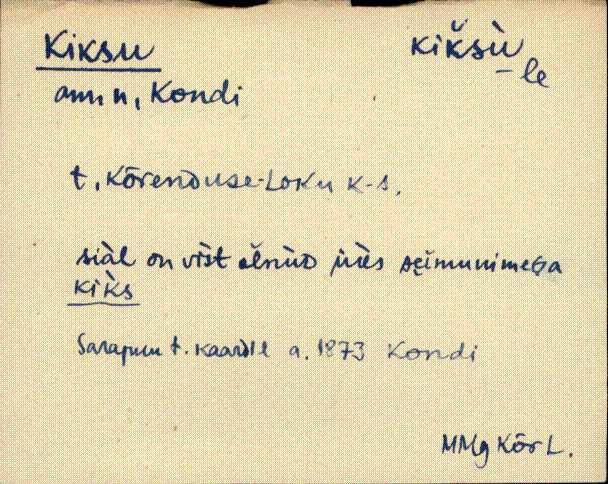 Kiksu kik̆sù
-le
amm n, Kondi
t, Kõrenduse-Loku k-s.
siàl on vist elnùD üɩ̀es pe̬imunimeGa
kiks
Sarapuu t. kaardil a. 1873 Kondi
MMg Kõr L.